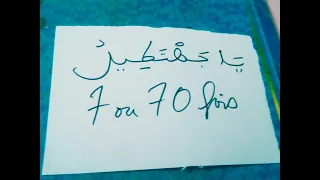 يَا جَهْتَطِيلُ
7 ou 70 fois